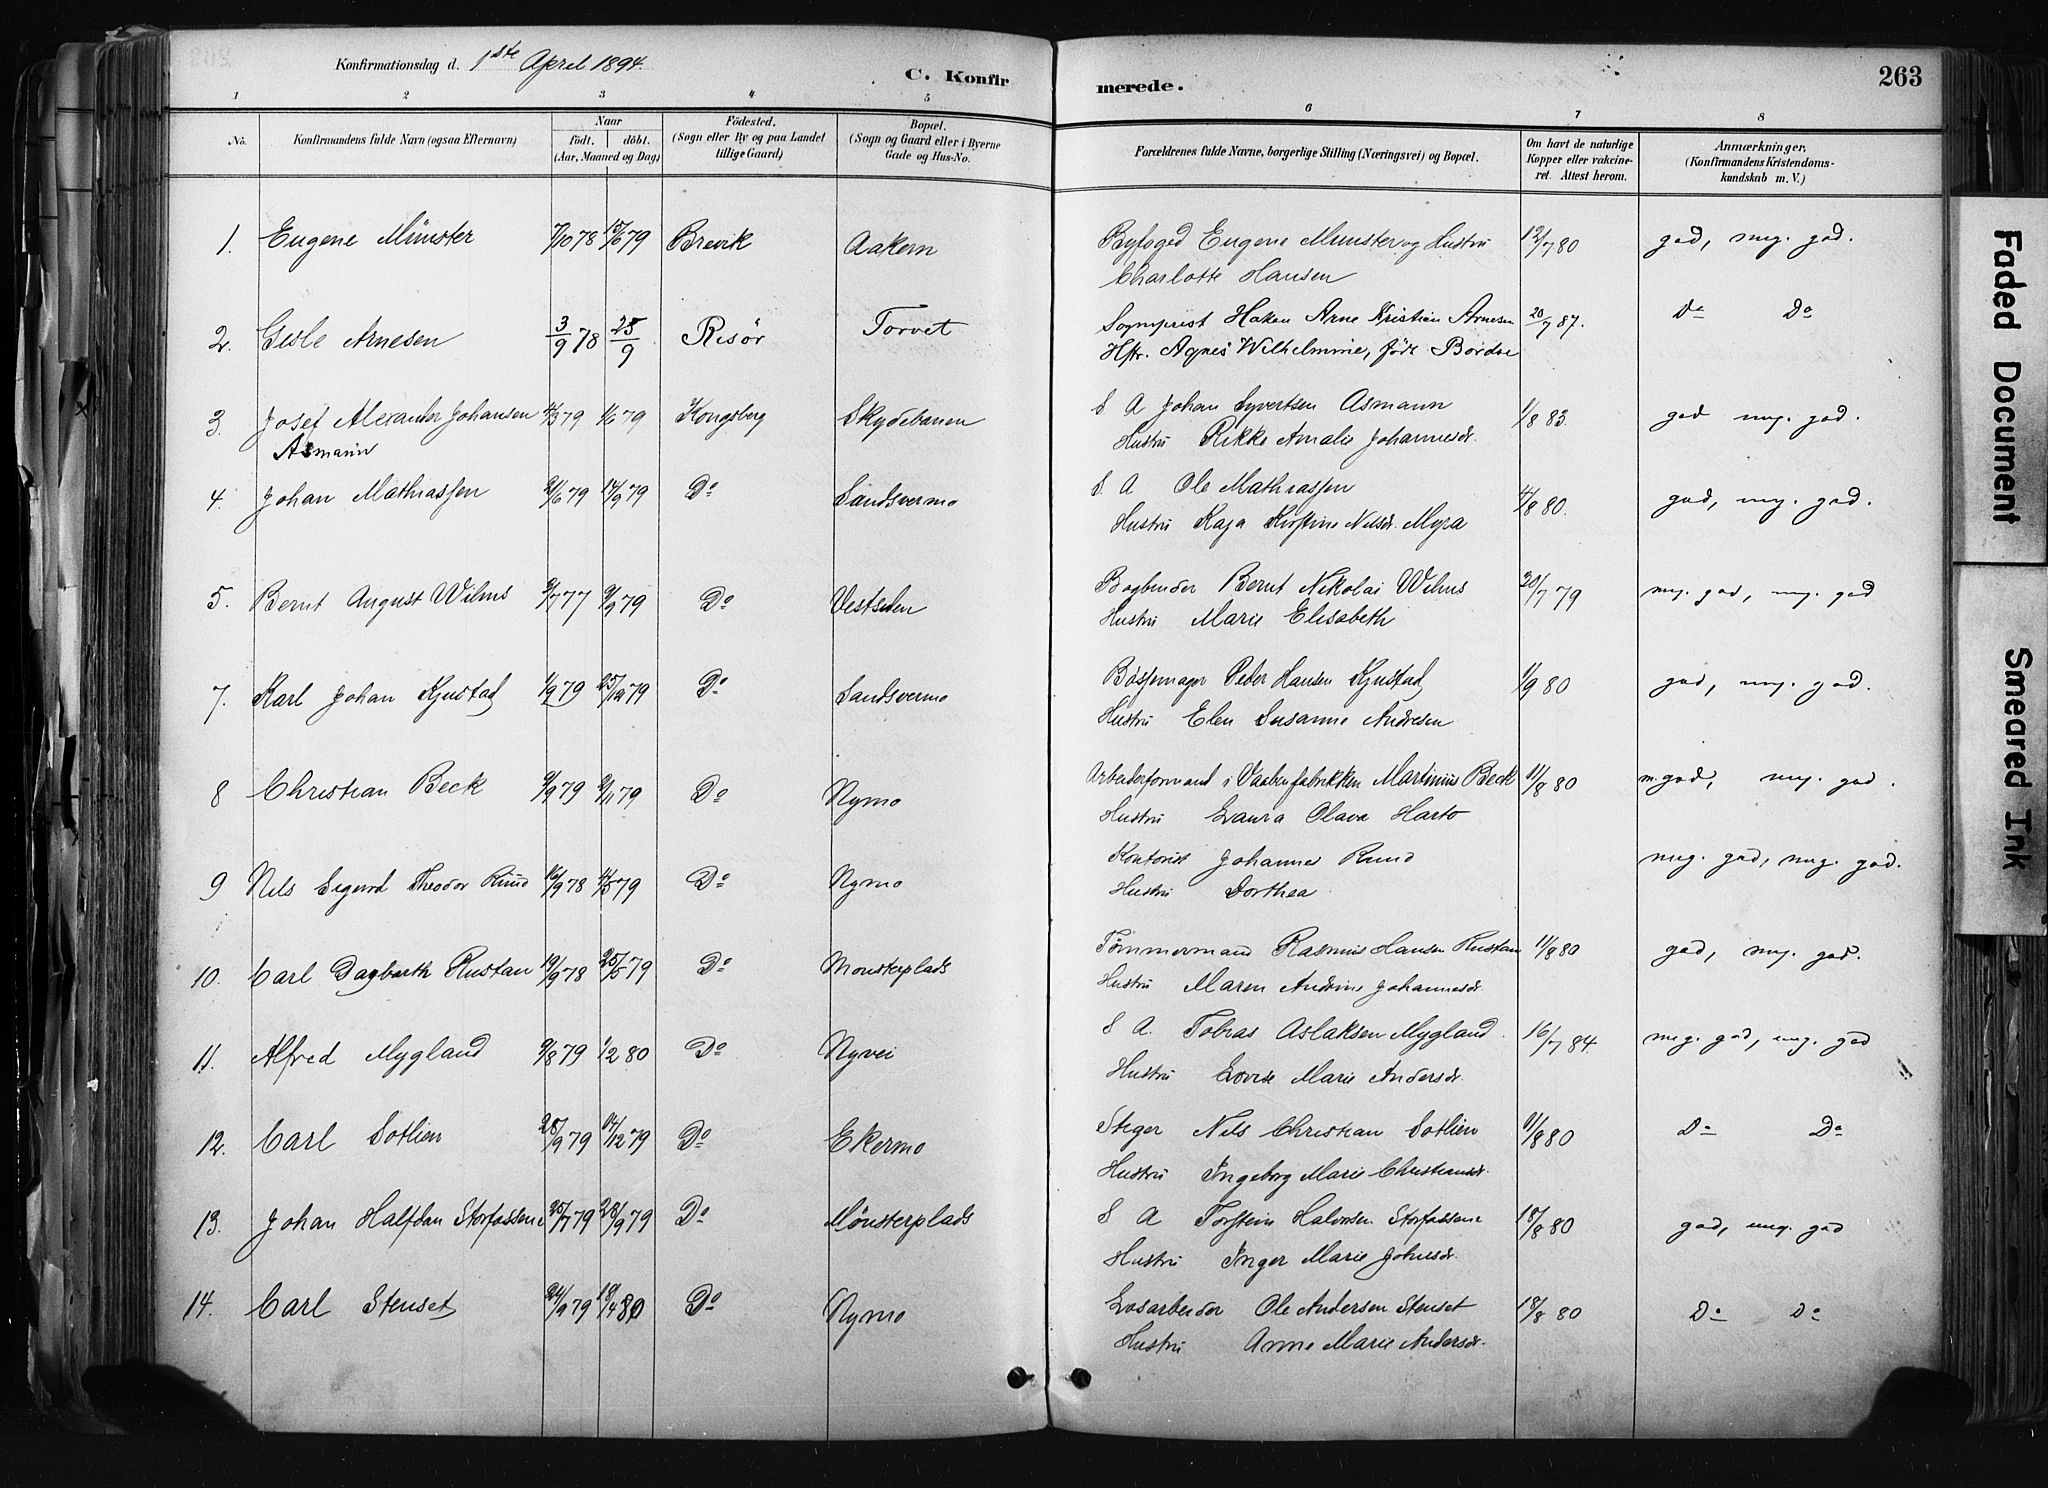 Konfirmationsdag d. 1ste April 1894.
C. Konfirmerede.
263
1 2 3 4 5 6 7 8
No.
Konfirmandens fulde Navn (ogsaa Efternavn)
Naar
födt. döbt.
(Aar, Maaned og Dag)
Födested.
(Sogn eller By og paa Landet
tillige Gaard)
Bopæl.
(Sogn og Gaard eller i Byerne
Gade og Hus-No.
Forældrenes fulde Navne, borgerlige Stilling (Næringsvei) og Bopæl.
Om havt de naturlige
Kopper eller vakcine-
ret. Attest herom.
Anmærkninger.
(Konfirmandens Kristendoms-
kundskab m. V.)
1. Eugene Münster 7/10 78 15/6 79 Brevik Aakern Byfoged Eugene Münster og Hustru 12/7 80 god, meg. god.
Charlotte Hansen
2. Gisle Arnesen 3/9 78 25/9 Risör Torvet Sogneprest Haken Arne Kristian Arnesen 20/7 87. Do Do
Hstr. Agnes Wilhelmine, föde
3. Josef Alexander Johansen 79 1/6 79 Kongsberg Skydebanen S A Johan Syvertsen Asmann 1/8 83. god meg. god.
Asmann
Hustru Rikke Amalie Johannesdr.
4. Johan Mathiassen 21/6 79 14/9 79 Do Sandsvermo S. A Ole Mathiassen 4/8 80. god, meg. god.
Hustru Kaja Kirstine Nilsdr. Myra
5. Bernt August Wilms 77 79 Do Vestsiden Bogbinder Bernt Nikolai Wilms 20/7 79 meg. god, meg. god
Hustru Marie Elisabeth
7. Karl Johan Kjustad 1/9 79 25/12 79 Do Sandsvermo Bössemager Peder Hansen Kjustad 1/9 80 god, meg. god.
Hustru Elen Susanne Andresen
8 Christian Beck 9/9 79 9/11 79 Do Nymo Arbeiderformand i Vaabenfabrikken Martinius Beck 11/8 80 m. god, meg. god.
Hustru Laura Olava Harto
9 Nils Sigurd Theodor Ruud 16/9 78 4/5 79 Do Nymo Kontorist Johannes Ruud meg. god, meg. god.
Hustru Dorthea
10. Carl Dagbarth Rustan 19/9 78 25/5 79 Do Monsterplads Tømmermand Rasmus Hansen Rustan 11/8 80 god, meg. god.
Hustru Maren Andrine Johannesdr.
11. Alfred Mygland 9/8 79 1/2 80 Do Nyvei S A. Tobias Aslaksen Mygland 16/7 84. meg. god, meg. god
Hustru Lovise Marie Andersdr.
12. Carl Sotlien 28/9 79 14/12 79 Do Ekermo Stiger Nils Christian Sotlien 11/8 80 Do Do
Hustru Ingeborg Marie Christiansdr.
13. Johan Halfdan Storfassene 25/7 79 28/9 79 Do Mønsterplads S A Torstein Halvorsen Storfassene 18/8 80 god, meg. god
Hustru Inger Marie Johnsdr.
14. Carl Stenset 24/9 79 18/4 80 Do Nymo Løsarbeider Ole Andersen Stenset 18/8 80 Do Do
Hustru Anne Marie Andersdr.
Faded Document
Smeared Ink